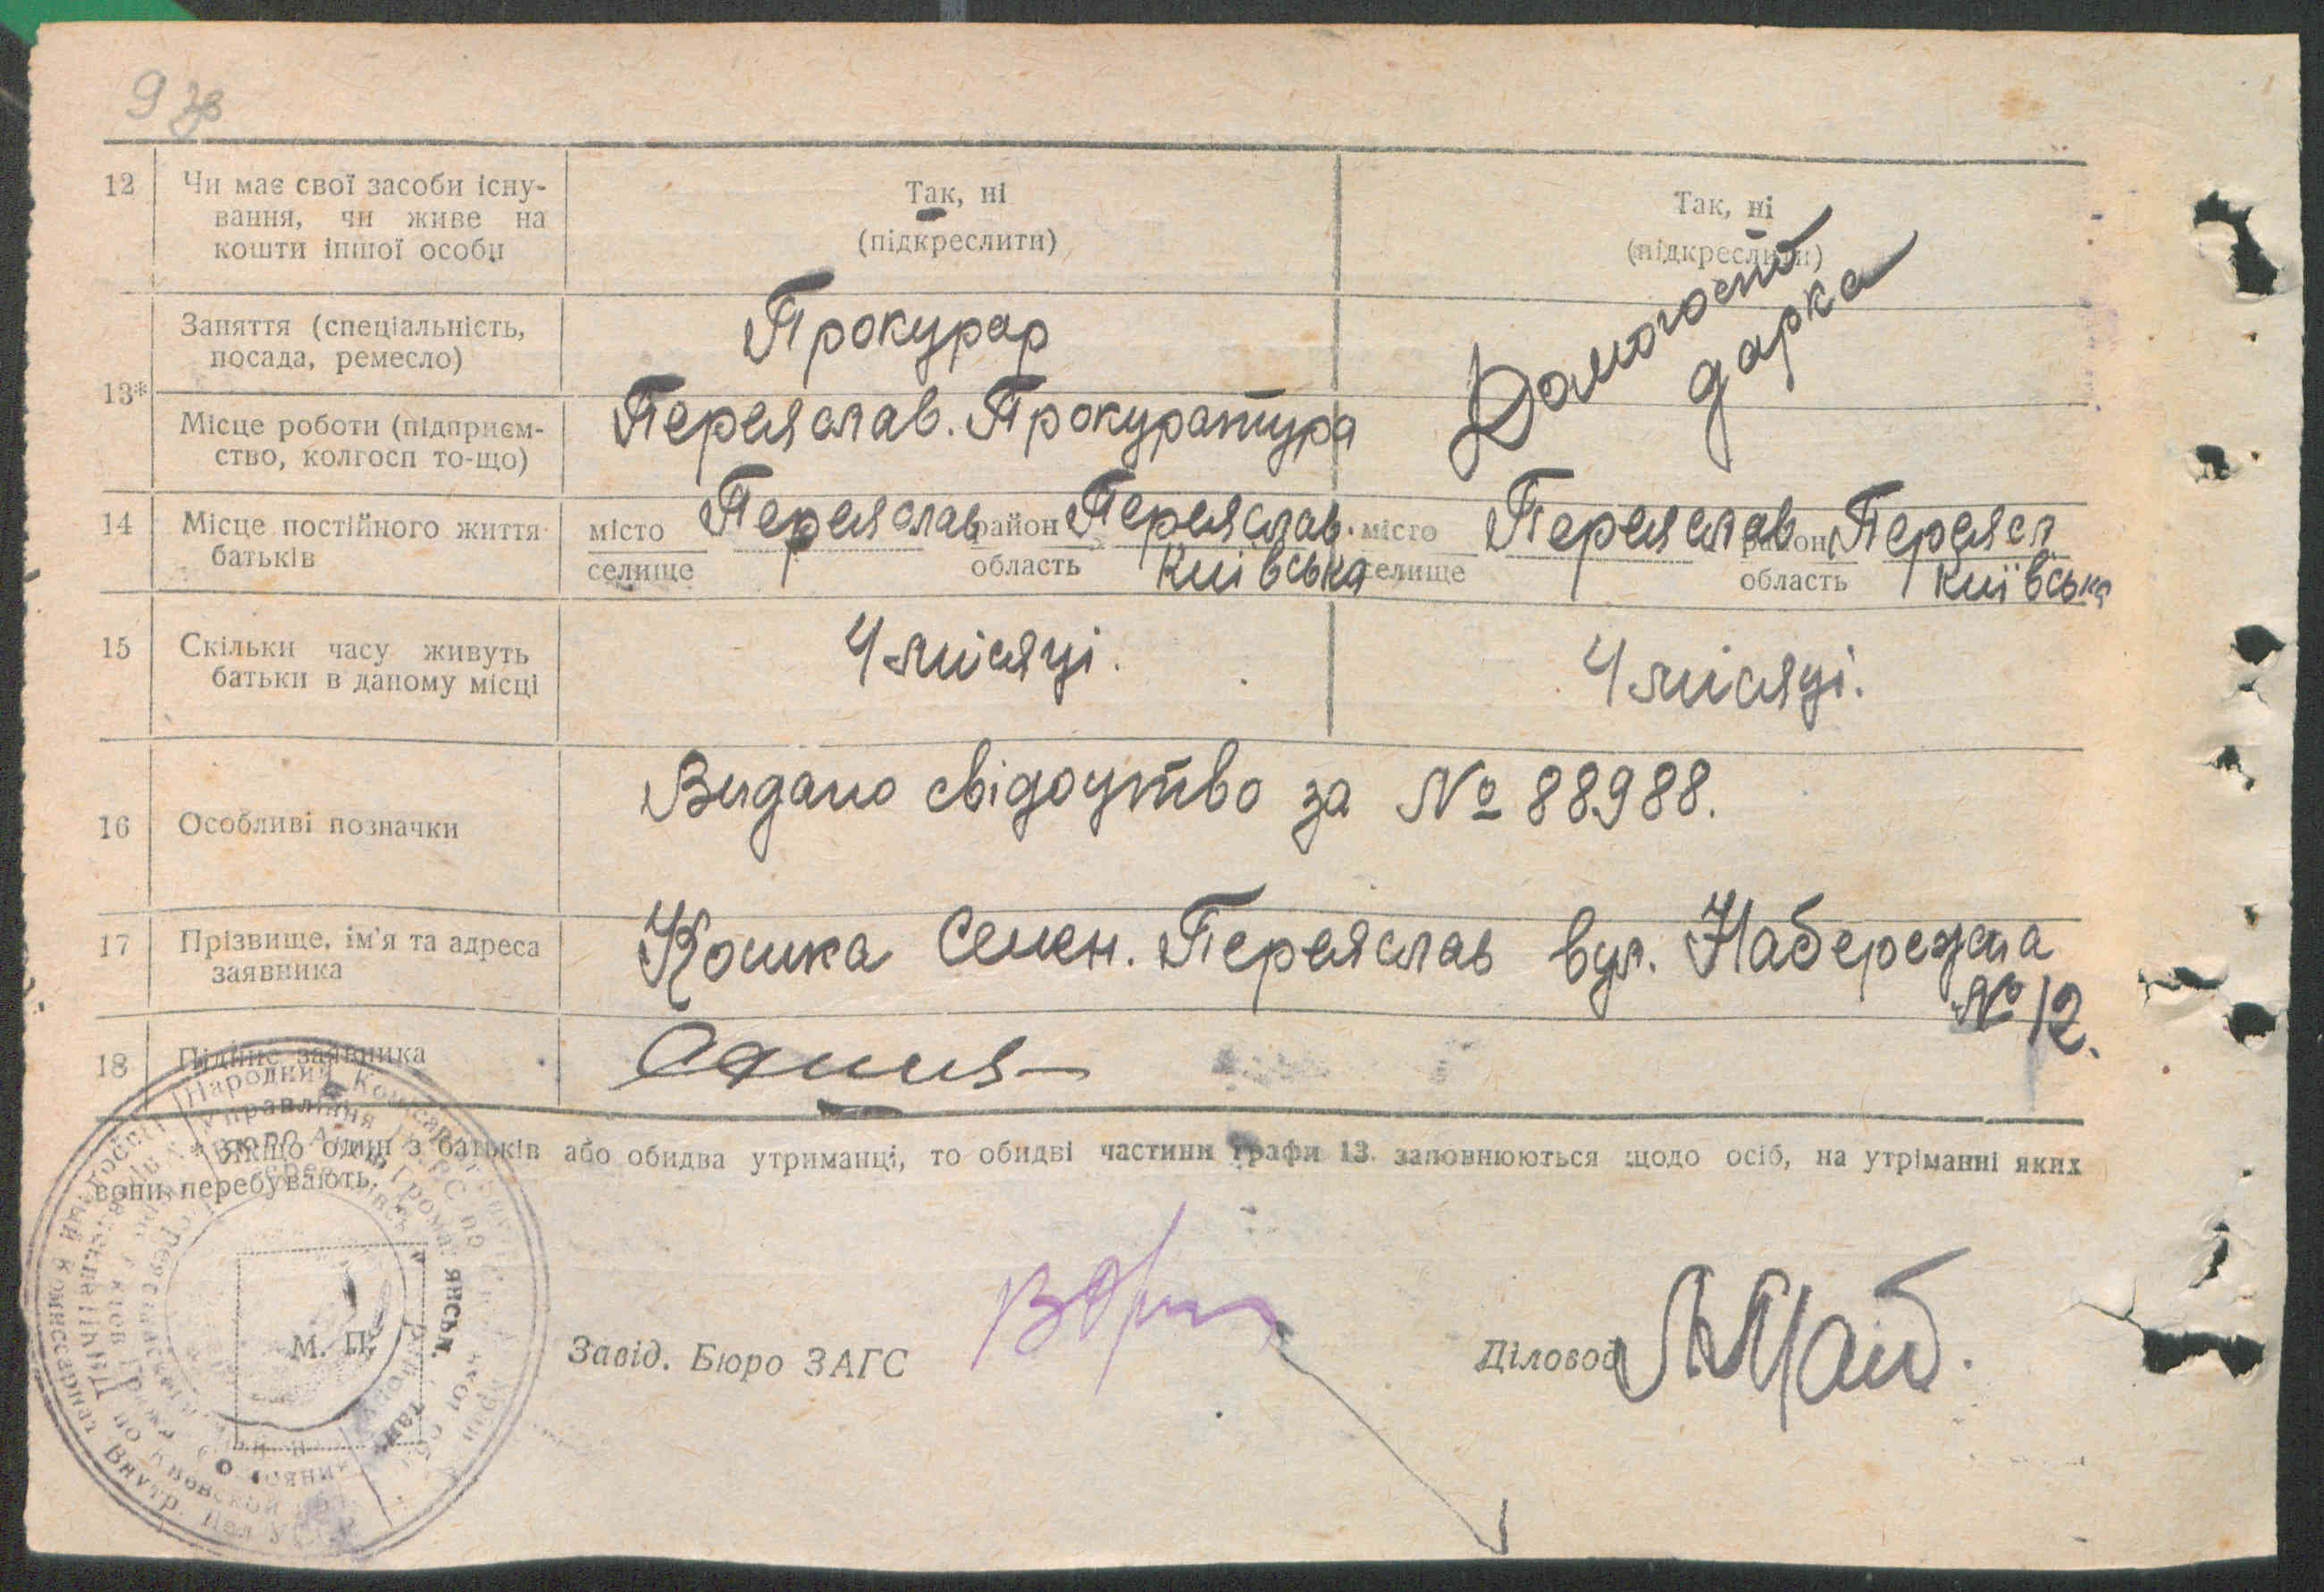 9 зв
12 Чи має свої засоби існу- Так, ні Так, ні
вання, чи живе на (підкреслити) (підкреслити)
кошти іншої особи
13* Заняття (спеціальність, Прокурар Домогоспо
посада, ремесло) дарка
Місце роботи (підприєм- Переяслав. Прокуратура
ство, колгосп то-що)
14 Місце постійного життя місто Переяслав район Переяслав. місто Переяслав район Переясл
батьків селище область Київська селище область Київська
15 Скільки часу живуть 4 місяці. 4 місяці.
батьки в даному місці
16 Особливі позначки Видано свідоцтво за № 88988.
17 Прізвище, ім'я та адреса Кошка Семен. Переяслав вул. Набережна
заявника № 12.
18 Підпис заявника
* Якщо один з батьків або обидва утриманці, то обидві частини графи 13 заповнюються щодо осіб, на утріманні яких
вони перебувають.
М. П.
Завід. Бюро ЗАГС Діловод